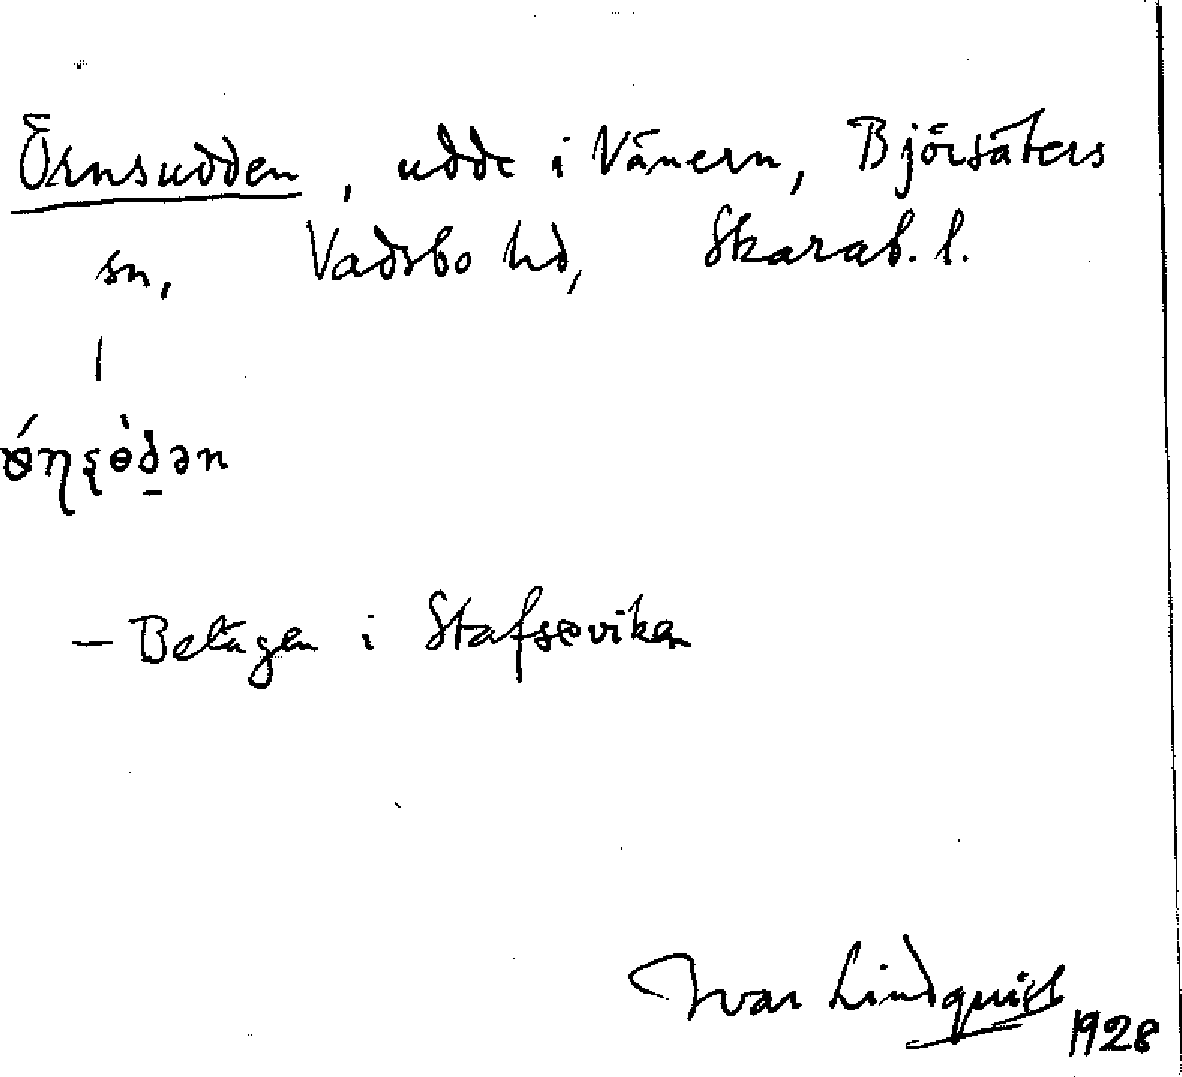 Örnsudden, udde i Vänern, Björsäters
sn, Vadsbo hd, Skarab. l.
- Belägen i Stafseviken
Ivar Lindquist
1928